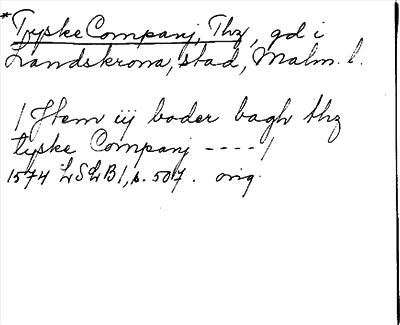 *Tyske Companj, Thz, gd i
Landskrona, stad, Malm. l.
/Jtem iij boder bagh thz
tyske Companj ----/
1574 LSLB1, s. 507. orig.